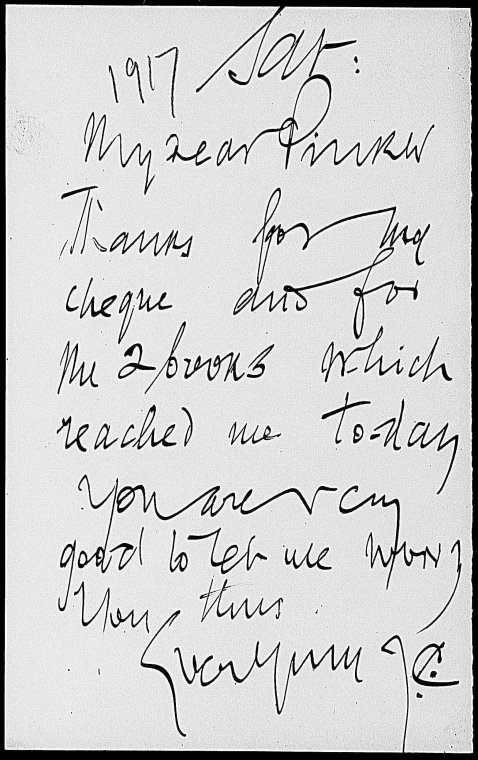 1917 Sat:
My dear Pinker
Thanks for the
cheque and for
the 2 books which
reached me to-day
You are very
good to let me worry
you thus.
Ever Yours J.C.